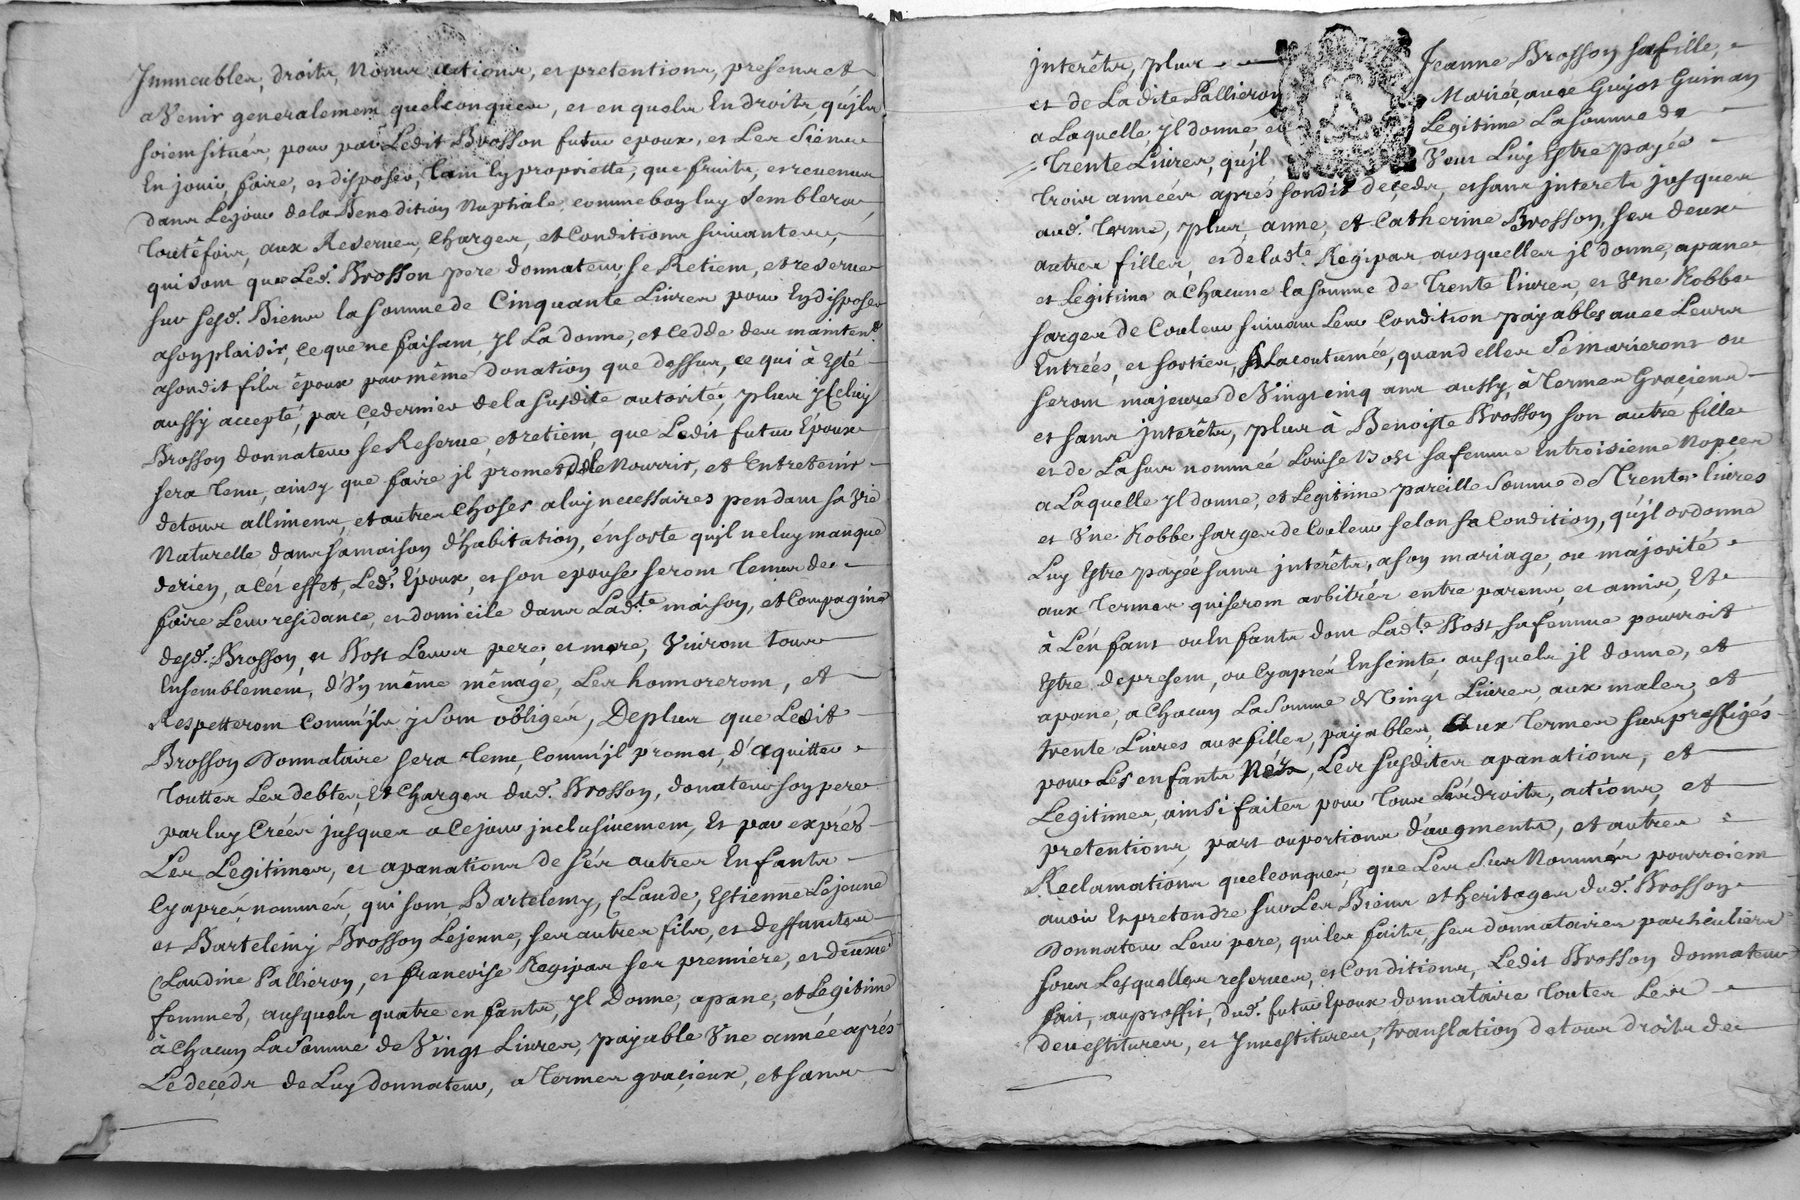 Immeubles, droits, Noms actions, et pretentions, presens et
a Venir generalement quelconques, et en quels Endroits, qu'jls
soient situés, pour par Ledit Brosson futur epoux, et Les Siens
En jouir, faire, et disposer, tant En propriette, que fruits, et revenus
dans Lejour de la Benediction Nuptiale, comme bon luy Semblera,
Toutêfois, aux Reserves, Charges, et Conditions suivantes,
qui sont que Led. Brosson pere donnateur, se Retient, et reserve
sur sesd. Biens la somme de Cinquante Livres pour En disposer
a son plaisir, ce que ne faisant, Jl La donne, et cedde des maintent.
asondit fils êpoux par même donation que dessus, ce qui à Esté
aussy accepté, par ce dernier de la susdite autorité, plus yceluy
Brosson donnateur se Reserve, et retient, que Ledit futur Epoux
sera Tenu, ainsy que faire jl promet, de le Nourrir, et Entretenir
de tous alliments, et autres Choses aluy necessaires pendant sa Vie
Naturelle dans sa maison d'habitation, ênsorte qu'jl ne luy manque
de rien, a Cét effet, Led. Epoux, et son epouse seront Tenus de
faire Leur residance, et domicile dans Ladte. maison, et Compagnie
desd. Brosson, et Bost Leurs pere, et mere, Vivront tous
Ensemblement, d'Vn même ménage, Les honnoreront, et
Respetteront Comm'jls j sont obligés, Deplus que Ledit
Brosson Donnataire sera Tenu, Comm'jl promet, d'aquitter
Touttes Les debtes, Et Charges dud. Brosson, donateur son pere
par luy Créés jusques a Ce jour jnclusivement, Et par exprés
Les Legitimes, et apanations de sés autres Enfants
Cy aprés nommés, qui sont Bartelemy, Claude, Estienne Lejeune
et Bartelemy Brosson Lejeune, ses autres fils, et deffunctes
Claudine Pallieron, et francoise Regipas ses premiere, et deuxe.
femmes, ausquels quatre enfants, Jl Donne, apane, et Legitime
à Chacun La Somme de Vingt Livres, payable Vne année aprés
Le deçéds de Luy donnateur, a Termes graçieux, et sans
jnterêts, plus Jeanne Brosson sa fille,
et de La dite Pallieron Mariée, avec Guyot Guinan
a Laquelle, Jl donne, et Legitime La somme de
Trente Livres, qu'jl Veut Luy Estre payée
Trois années aprés sondit deçéds, et sans jnterets jusques
aud. Terme, plus, anne, et Catherine Brosson, ses deux
autres filles, et de ladte. Regipas ausquelles jl donne, apane
et Legitime a Chacune la somme de Trente livres, et Vne Robbe
sarges de Couleur suivant Leur Condition payables avec Leurs
Entrées, et sorties, a Lacoutumée, quand elles Se marieront ou
seront majeure de Vingt cinq ans aussy à Termes Graçieux
et sans jnterêts, plus à Benoiste Brosson son autre fille
et de La sus nommée Louise Bost sa femme En troisieme Nopçes
a Laquelle Jl donne, et Legitime pareille Somme de Trente livres
et Vne Robbe sarges de Couleur selon sa Condition, qu'jl ordonne
Luy Estre payée sans jnterêts, a son mariage, ou majorité
aux Termes qui seront arbitrés entre parens, et amis, Et
à L'énfant ou Enfants dont Ladte. Bost sa femme pourroit
Estre de present, ou Cy aprés Enseinte, ausquels jl donne, et
apane, a Chacun La Somme de Vingt Livres aux males, et
trente Livres aux filles, payables, Aux Termes sus preffigés
pour Lés enfants Nés, Les susdites apanations, et
Legitimes, ainsi faites pour Tous Lés droits, actions, et
pretentions, part ou portions d'augments, et autres
Reclamations quelconques, que Les Sus Nommés pourroient
avoir Et pretendre sur Les Biens et heritages dud. Brosson
Donnateur Leur pere, qui les faits, ses donnataires particuliers
sous Lesquelles reserves, et Conditions, Ledit Brosson donnateur
fait, au proffit, dud. futur Epoux donnataire Toutes Les
devestitures, et Jnvestitures, translation de tous droits de